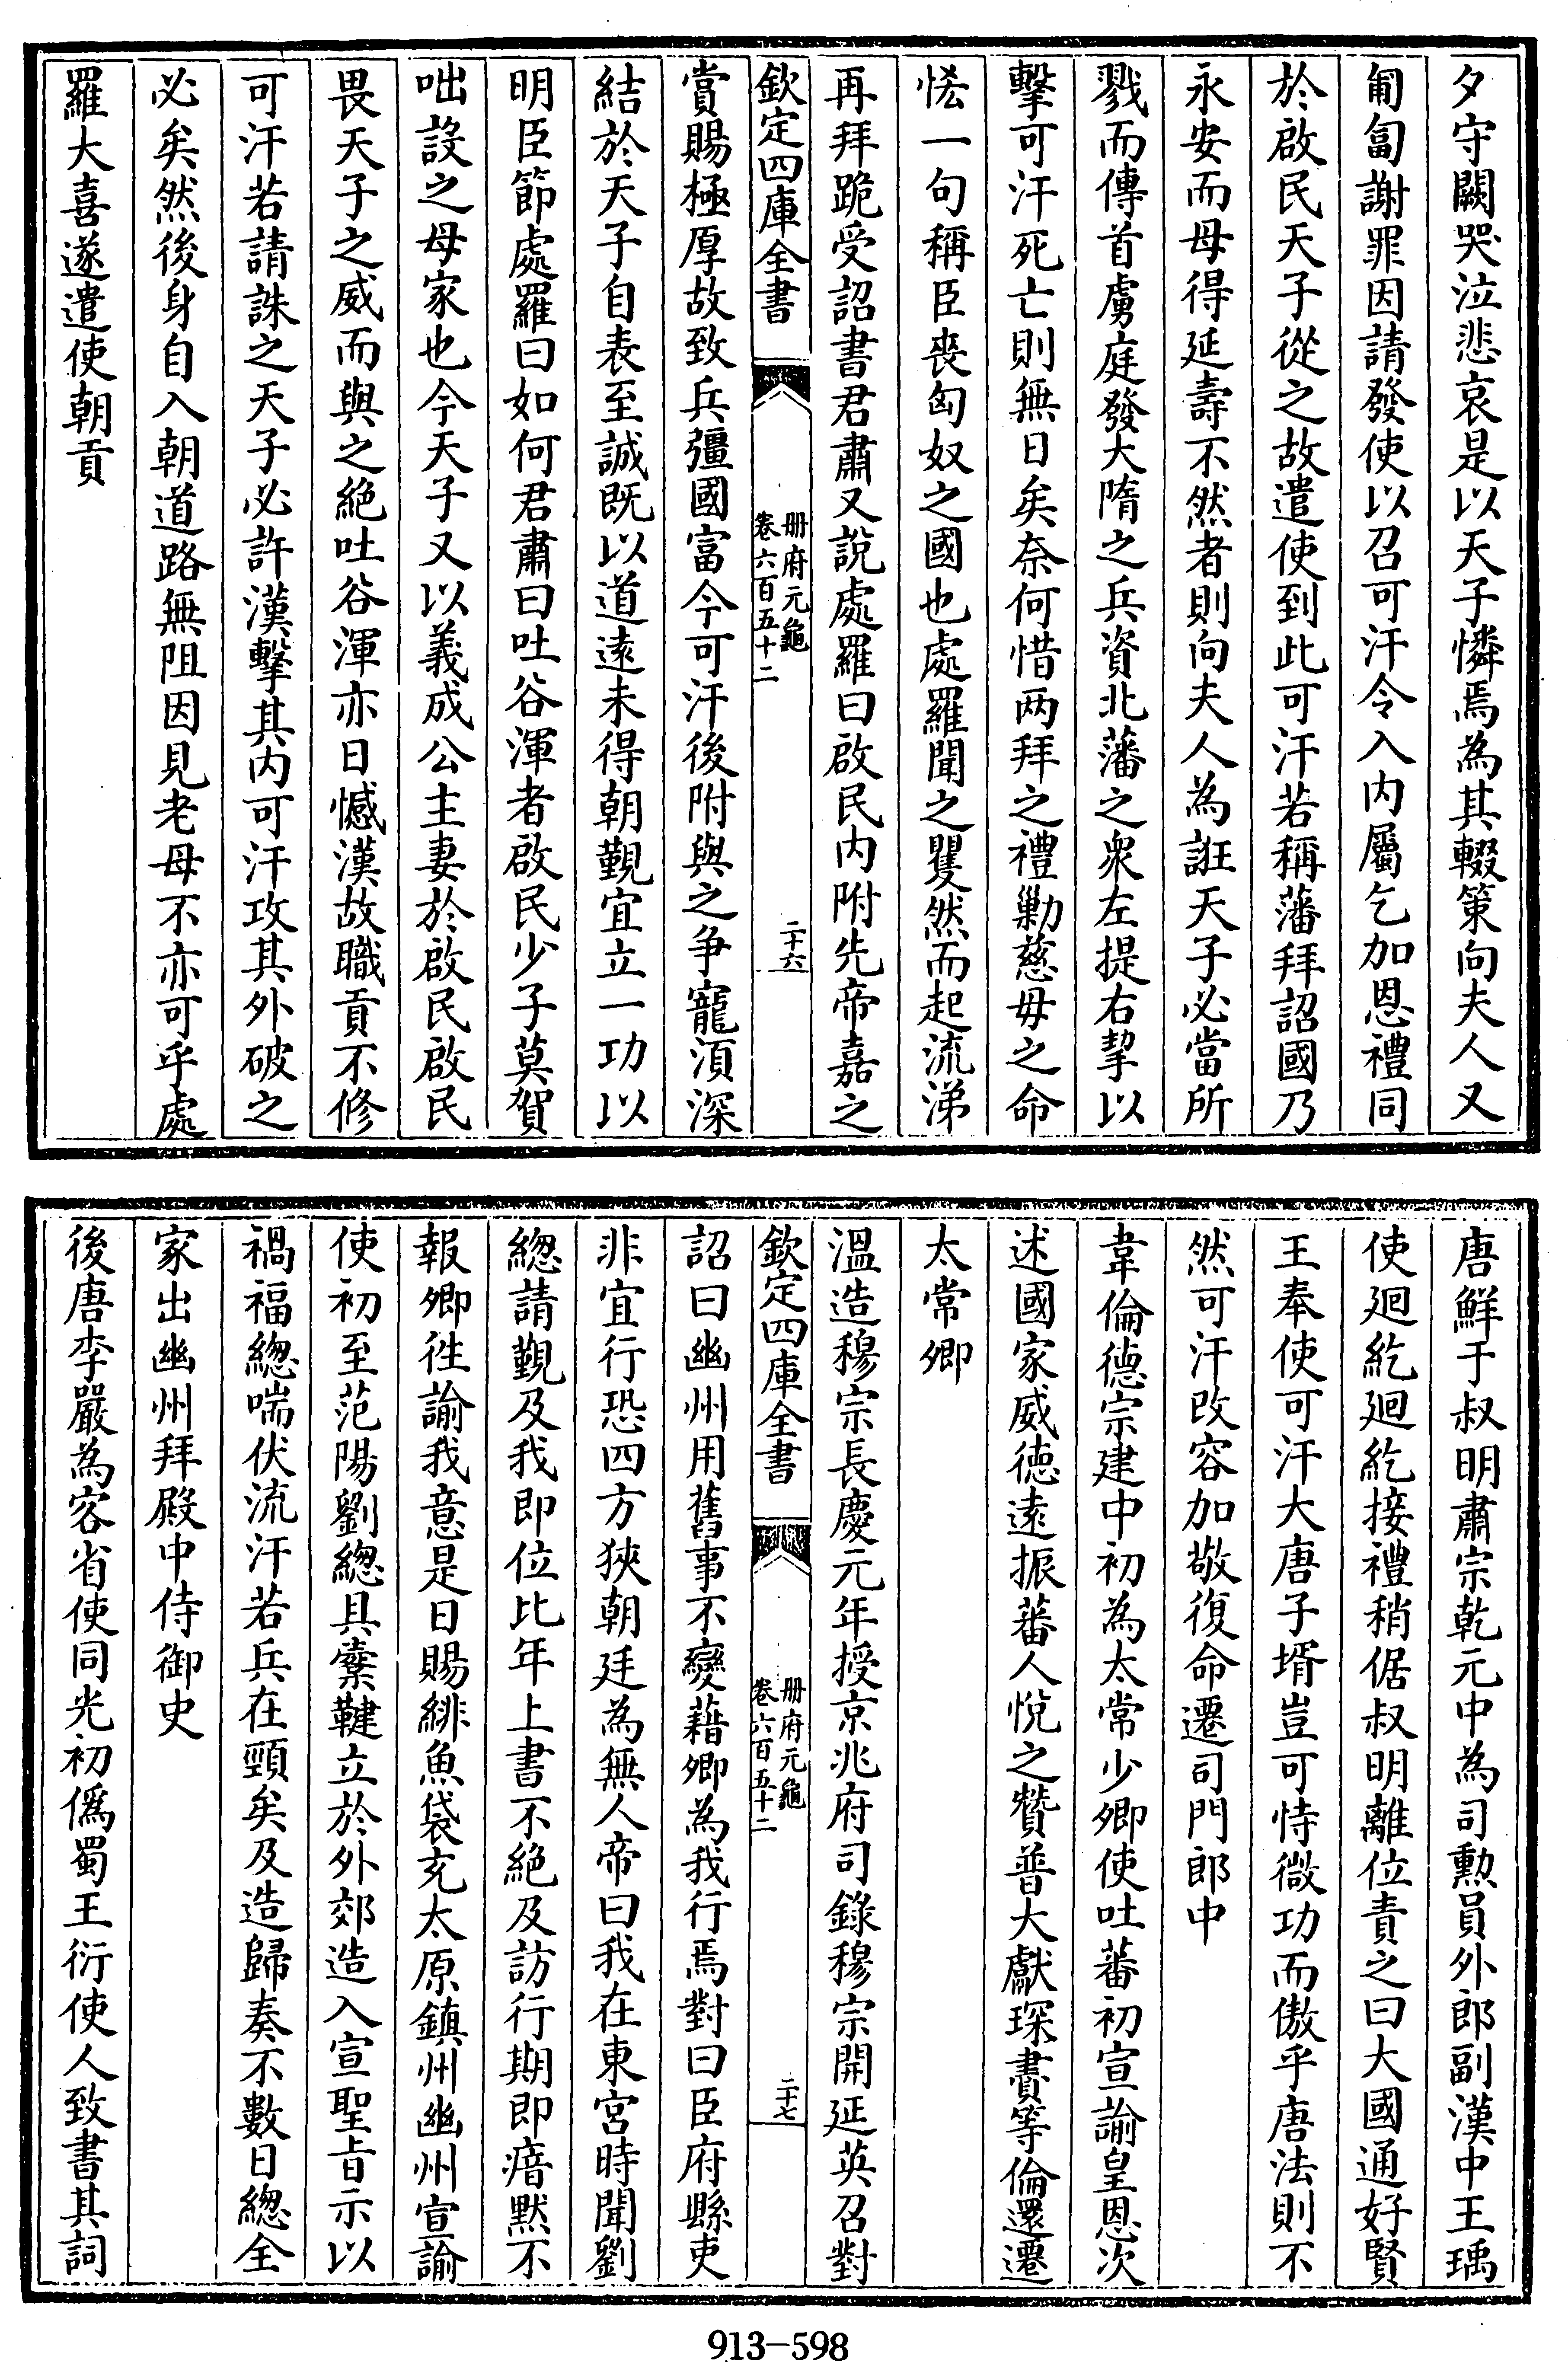 夕守闕哭泣悲哀是以天子憐焉為其輟策向夫人又
匍匐謝罪因請發使以召可汗令入内屬乞加恩禮同
於啟民天子從之故遣使到此可汗若稱藩拜詔國乃
永安而母得延壽不然者則向夫人為誑天子必當所
戮而傳首虜庭發大隋之兵資北藩之衆左提右挈以
擊可汗死亡則無日矣奈何惜两拜之禮勦慈母之命
恡一句稱臣喪匈奴之國也處羅聞之矍然而起流涕
再拜跪受詔書君肅又說處羅曰啟民内附先帝嘉之
欽定四庫全書
冊府元龜
卷六百五十二
二十六
賞賜極厚故致兵彊國富今可汗後附與之争寵湏深
結於天子自表至誠既以道遠未得朝覲宜立一功以
明臣節處羅曰如何君肅曰吐谷渾者啟民少子莫賀
咄設之母家也今天子又以義成公主妻於啟民啟民
畏天子之威而與之絶吐谷渾亦曰憾漢故職貢不修
可汗若請誅之天子必許漢擊其内可汗攻其外破之
必矣然後身自入朝道路無阻因見老母不亦可乎處
羅大喜遂遣使朝貢
唐鮮于叔明肅宗乾元中為司勲員外郎副漢中王瑀
使廻紇廻紇接禮稍倨叔明離位責之曰大國通好賢
王奉使可汗大唐子壻豈可恃微功而傲乎唐法則不
然可汗改容加敬復命遷司門郎中
韋倫德宗建中初為太常少卿使吐蕃初宣諭皇恩次
述國家威徳遠振蕃人悅之贊普大獻琛賮等倫還遷
太常卿
溫造穆宗長慶元年授京兆府司錄穆宗開延英召對
欽定四庫全書
冊府元龜
卷六百五十二
二十七
詔曰幽州用舊事不變藉卿為我行焉對曰臣府縣吏
非宜行恐四方狹朝廷為無人帝曰我在東宮時聞劉
緫請覲及我即位比年上書不絶及訪行期即瘖默不
報卿徃諭我意是日賜緋魚袋充太原鎮州幽州宣諭
使初至范陽劉緫具櫜鞬立於外郊造入宣聖旨示以
禍福緫喘伏流汗若兵在頸矣及造歸奏不數日緫全
家出幽州拜殿中侍御史
後唐李嚴為客省使同光初僞蜀王衍使人致書其詞
913-598